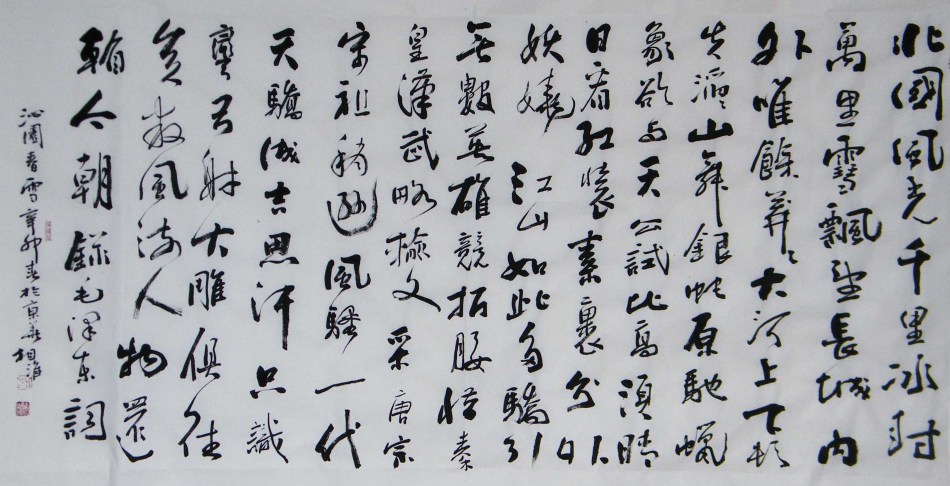 北國風光千里冰封
萬里雪飄望長城內
外唯餘莽々大河上下頓
失滔山舞銀蛇原馳蠟
象欲与天公試比高須晴
日看红裝素裹分外
妖嬈江山如此多驕引
無數英雄競折腰惜秦
皇漢武略輸文采唐宗
宋祖稍遜風騷一代
天驕成吉思汗只識
彎弓射大雕俱往
矣數風流人物還
看今朝錄毛澤東詞
沁園春雪辛卯春於京華